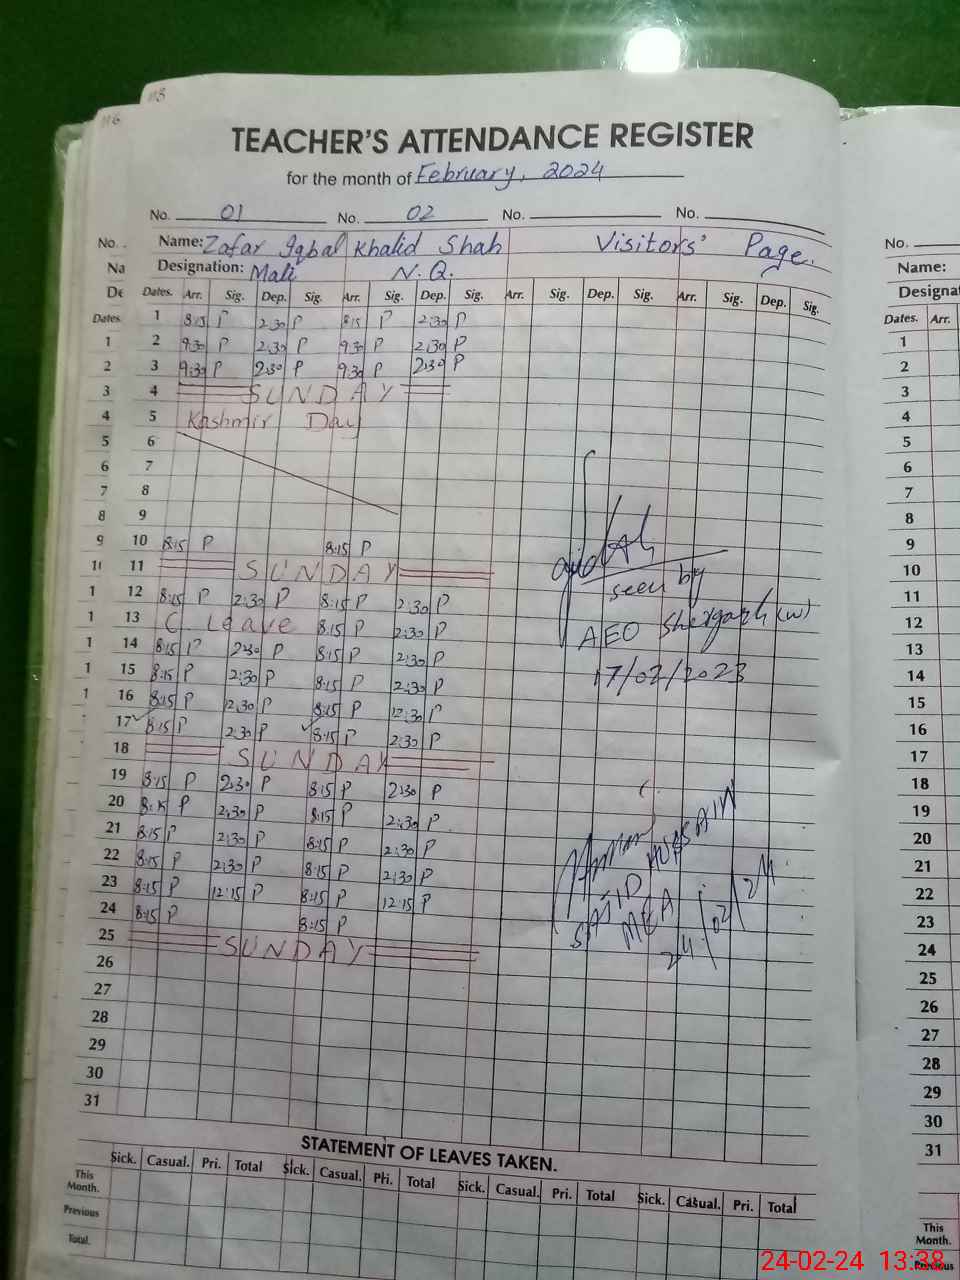 113
116
TEACHER'S ATTENDANCE REGISTER
for the month of February, 2024
No. 01 No. 02 No. No.
Name: Zafar Iqbal Khalid Shah Visitors' Page.
Designation: Mali N.Q.
Dates. Arr. Sig. Dep. Sig. Arr. Sig. Dep. Sig. Arr. Sig. Dep. Sig. Arr. Sig. Dep. Sig.
1 8:15 P 2:30 P 8:15 P 2:30 P
2 9:30 P 2:30 P 9:30 P 2:30 P
3 9:30 P 2:30 P 9:30 P 2:30 P
4 SUNDAY
5 Kashmir Day
6
7
8
9
10 8:15 P 8:15 P
11 SUNDAY
12 8:15 P 2:30 P 8:15 P 2:30 P
13 C. Leave 8:15 P 2:30 P
14 8:15 P 2:30 P 8:15 P 2:30 P
15 8:15 P 2:30 P 8:15 P 2:30 P
16 8:15 P 12:30 P 8:15 P 12:30 P
17 8:15 P 2:30 P 8:15 P 2:30 P
18 SUNDAY
19 8:15 P 2:30 P 8:15 P 2:30 P
20 8:15 P 2:30 P 8:15 P 2:30 P
21 8:15 P 2:30 P 8:15 P 2:30 P
22 8:15 P 2:30 P 8:15 P 2:30 P
23 8:15 P 12:15 P 8:15 P 12:15 P
24 8:15 P 8:15 P
25 SUNDAY
26
27
28
29
30
31
seen by
AEO Shergarh (w)
17/02/2023
SAJID HUSSAIN
MEA
24/02/24
STATEMENT OF LEAVES TAKEN.
Sick. Casual. Pri. Total Sick. Casual. Pri. Total Sick. Casual. Pri. Total Sick. Casual. Pri. Total
This Month.
Previous
Total.
No.
Na
De
Dates
1
2
3
4
5
6
7
8
9
No.
Name:
Designat
Dates. Arr.
1
2
3
4
5
6
7
8
9
10
11
12
13
14
15
16
17
18
19
20
21
22
23
24
25
26
27
28
29
30
31
This Month.
Previous
24-02-24 13:38